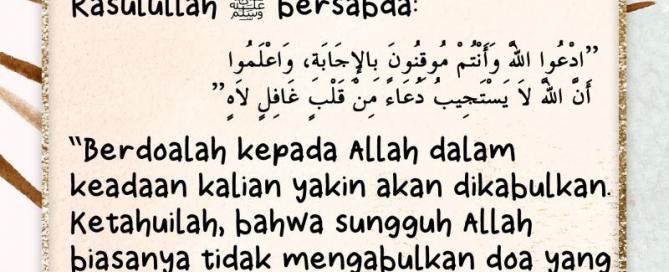 Rasulullah ﷺ bersabda:
”ادْعُوا اللَّهَ وَأَنْتُمْ مُوقِنُونَ بِالإِجَابَةِ، وَاعْلَمُوا
أَنَّ اللَّهَ لاَ يَسْتَجِيبُ دُعَاءً مِنْ قَلْبٍ غَافِلٍ لاَهٍ”
“Berdoalah kepada Allah dalam
keadaan kalian yakin akan dikabulkan.
Ketahuilah, bahwa sungguh Allah
biasanya tidak mengabulkan doa yang